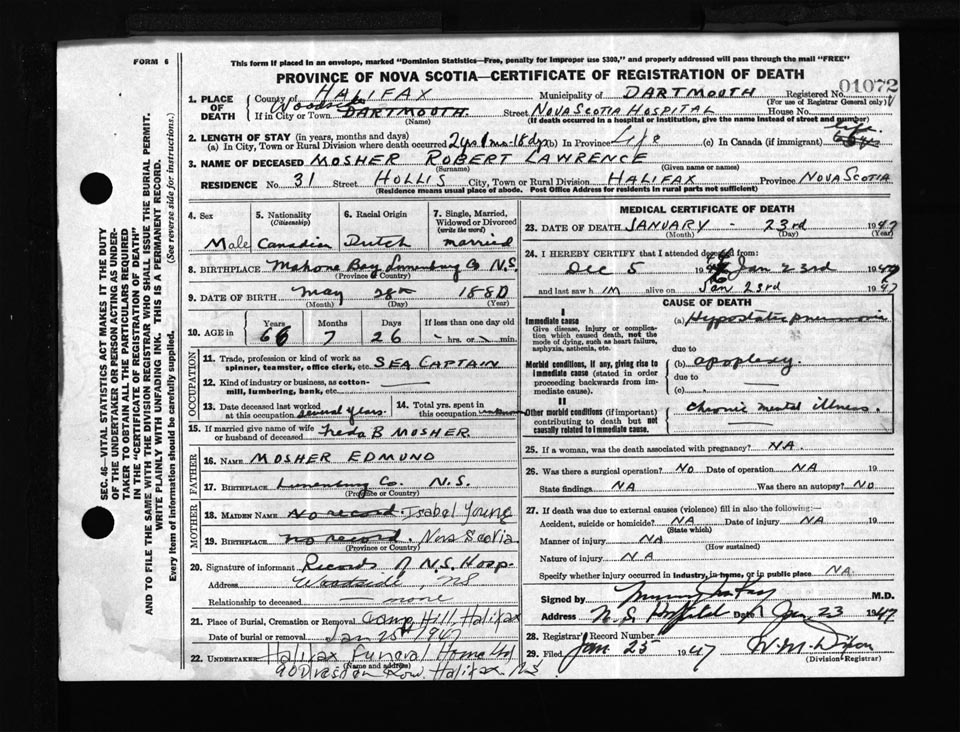 FORM 6
This form if placed in an envelope, marked "Dominion Statistics—Free, penalty for improper use $300," and properly addressed will pass through the mail "FREE"
PROVINCE OF NOVA SCOTIA—CERTIFICATE OF REGISTRATION OF DEATH
1. PLACE OF DEATH County of HALIFAX Municipality of DARTMOUTH Registered No. 01072
(For use of Registrar General only)
If in City or Town DARTMOUTH Street NOVA SCOTIA HOSPITAL House No.
(Name) (If death occurred in a hospital or institution, give the name instead of street and number)
2. LENGTH OF STAY (in years, months and days)
(a) In City, Town or Rural Division where death occurred 2 yrs 1 ms-18 dys (b) In Province Life (c) In Canada (if immigrant) Life
3. NAME OF DECEASED MOSHER ROBERT LAWRENCE
(Surname) (Given name or names)
RESIDENCE No. 31 Street HOLLIS City, Town or Rural Division HALIFAX Province NOVA SCOTIA
(Residence means usual place of abode. Post Office Address for residents in rural parts not sufficient)
SEC. 46—VITAL STATISTICS ACT MAKES IT THE DUTY
OF THE UNDERTAKER OR PERSON ACTING AS UNDER-
TAKER TO OBTAIN ALL THE PARTICULARS REQUIRED
IN THE "CERTIFICATE OF REGISTRATION OF DEATH"
AND TO FILE THE SAME WITH THE DIVISION REGISTRAR WHO SHALL ISSUE THE BURIAL PERMIT.
WRITE PLAINLY WITH UNFADING INK. THIS IS A PERMANENT RECORD.
Every item of information should be carefully supplied. (See reverse side for instructions.)
4. Sex 5. Nationality (Citizenship) 6. Racial Origin 7. Single, Married, Widowed or Divorced (write the word)
Male Canadian Dutch married
8. BIRTHPLACE Mahone Bay Lunenburg Co N.S.
(Province or Country)
9. DATE OF BIRTH May 28th 1880
(Month) (Day) (Year)
10. AGE in Years Months Days If less than one day old
66 7 26 hrs. or min.
OCCUPATION
11. Trade, profession or kind of work as spinner, teamster, office clerk, etc. SEA CAPTAIN
12. Kind of industry or business, as cotton-mill, lumbering, bank, etc.
13. Date deceased last worked at this occupation several years 14. Total yrs. spent in this occupation unknown
15. If married give name of wife or husband of deceased Freda B MOSHER
FATHER
16. NAME MOSHER EDMUND
17. BIRTHPLACE Lunenburg Co. N.S.
(Province or Country)
MOTHER
18. MAIDEN NAME No record Isabel Young
19. BIRTHPLACE no record. Nova Scotia
(Province or Country)
20. Signature of informant Records of N.S. Hosp.
Address Woodside, NS
Relationship to deceased none
21. Place of Burial, Cremation or Removal Camp Hill, Halifax
Date of burial or removal Jan 25th 1947
22. UNDERTAKER Halifax Funeral Home Ltd
(Name and address)
90 Dresden Row, Halifax NS
MEDICAL CERTIFICATE OF DEATH
23. DATE OF DEATH JANUARY - 23rd 1947
(Month) (Day) (Year)
24. I HEREBY CERTIFY that I attended deceased from:
Dec 5 19 to Jan 23rd 1947
and last saw h IM alive on Jan 23rd 1947
CAUSE OF DEATH
I
Immediate cause (a) Hypostatic pneumonia
Give disease, injury or complication which caused death, not the mode of dying, such as heart failure, asphyxia, asthenia, etc. due to
Morbid conditions, if any, giving rise to immediate cause (stated in order proceeding backwards from immediate cause). (b) apoplexy.
due to
(c)
II
Other morbid conditions (if important) contributing to death but not causally related to immediate cause. Chronic mental illness.
25. If a woman, was the death associated with pregnancy? NA.
26. Was there a surgical operation? NO Date of operation NA 19
State findings NA Was there an autopsy? NO
27. If death was due to external causes (violence) fill in also the following:—
Accident, suicide or homicide? NA Date of injury NA 19
(State which)
Manner of injury NA
(How sustained)
Nature of injury NA
Specify whether injury occurred in industry, in home, or in public place NA.
Signed by M.D.
Address N.S. Hospital Date Jan 23 1947
28. Registrar's Record Number
29. Filed Jan. 25 1947 W. M. Dixon
(Division Registrar)